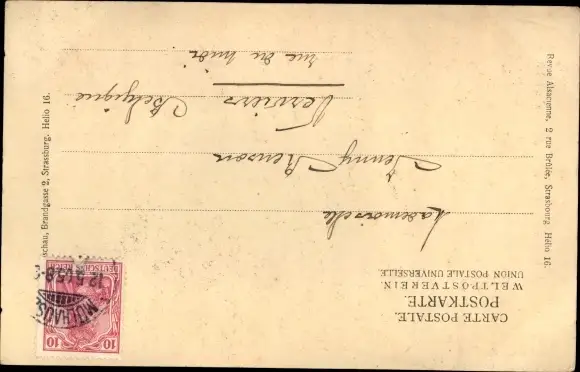 CARTE POSTALE.
POSTKARTE.
WELTPOSTVEREIN.
UNION POSTALE UNIVERSELLE.
10 10
DEUTSCHES REICH
MÜLHAUSEN
Mademoiselle
Jenny
Verviers
rue du midi
Belgique
Revue Alsacienne, 2 rue Brûlée, Strasbourg. Helio 16.
schau, Brandgasse 2, Strassburg. Helio 16.